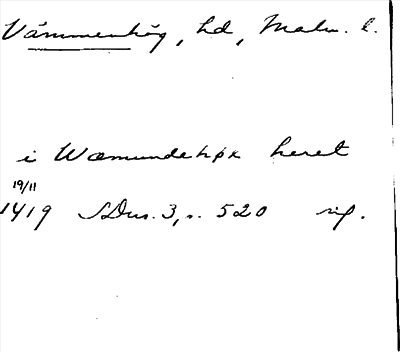 Vämmenhög, hd, Malm. l.
i Wæmundehøx heret
19/11
1419 SDns. 3, s. 520 sig.